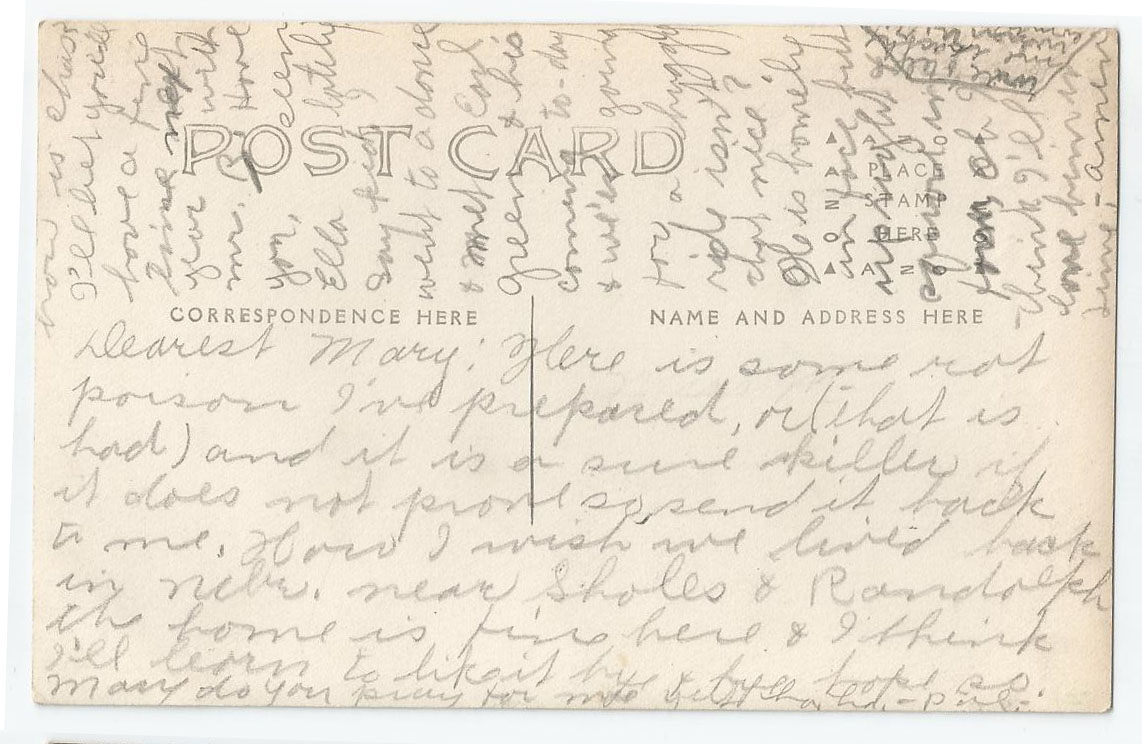 POST CARD
PLACE
STAMP
HERE
CORRESPONDENCE HERE
NAME AND ADDRESS HERE
Dearest Mary: Here is some rat
poison I've prepared, or (that is
had) and it is a sure killer if
it does not prove so, send it back
to me. How I wish we lived back
in Nebr. near Sholes & Randolph
the home is fine here & I think
I'll learn to like it by & by hope so.
Mary do you pray for me
how is chas
I'll bet you'll
have a fine
time next
year with
mr.
you,
Ella
Say
went to adone
& met Earl
Green & his
coming to-day
& we're going
for a buggy
ride isn't
that nice?
He is homely
in face but

think I'll
love him in
time, - amen